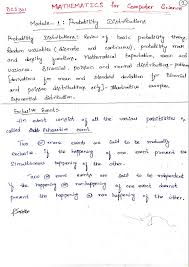 BCS301 MATHEMATICS for Computer Science
Module - 1 : Probability Distributions
Probability Distributions: Review of basic probability theory.
Random variables (discrete and continuous), probability mass
and density functions. Mathematical expectation, mean and
variance. Binomial, poisson and normal distributions -
(derivations for mean and standard deviation for Binomial
and poisson distributions only) - Illustrative examples.
Exponential distribution.
Exclusive Events:
An event consist of all the various possibilities is
called Exhaustive event.
Two or more events are said to be mutually
exclusive if the happening of one event prevent the
simultaneous happening of the others.
Two or more events are said to be independent
if the happening or non-happening of one event doesnot
prevent the happening or non-happening of the others.